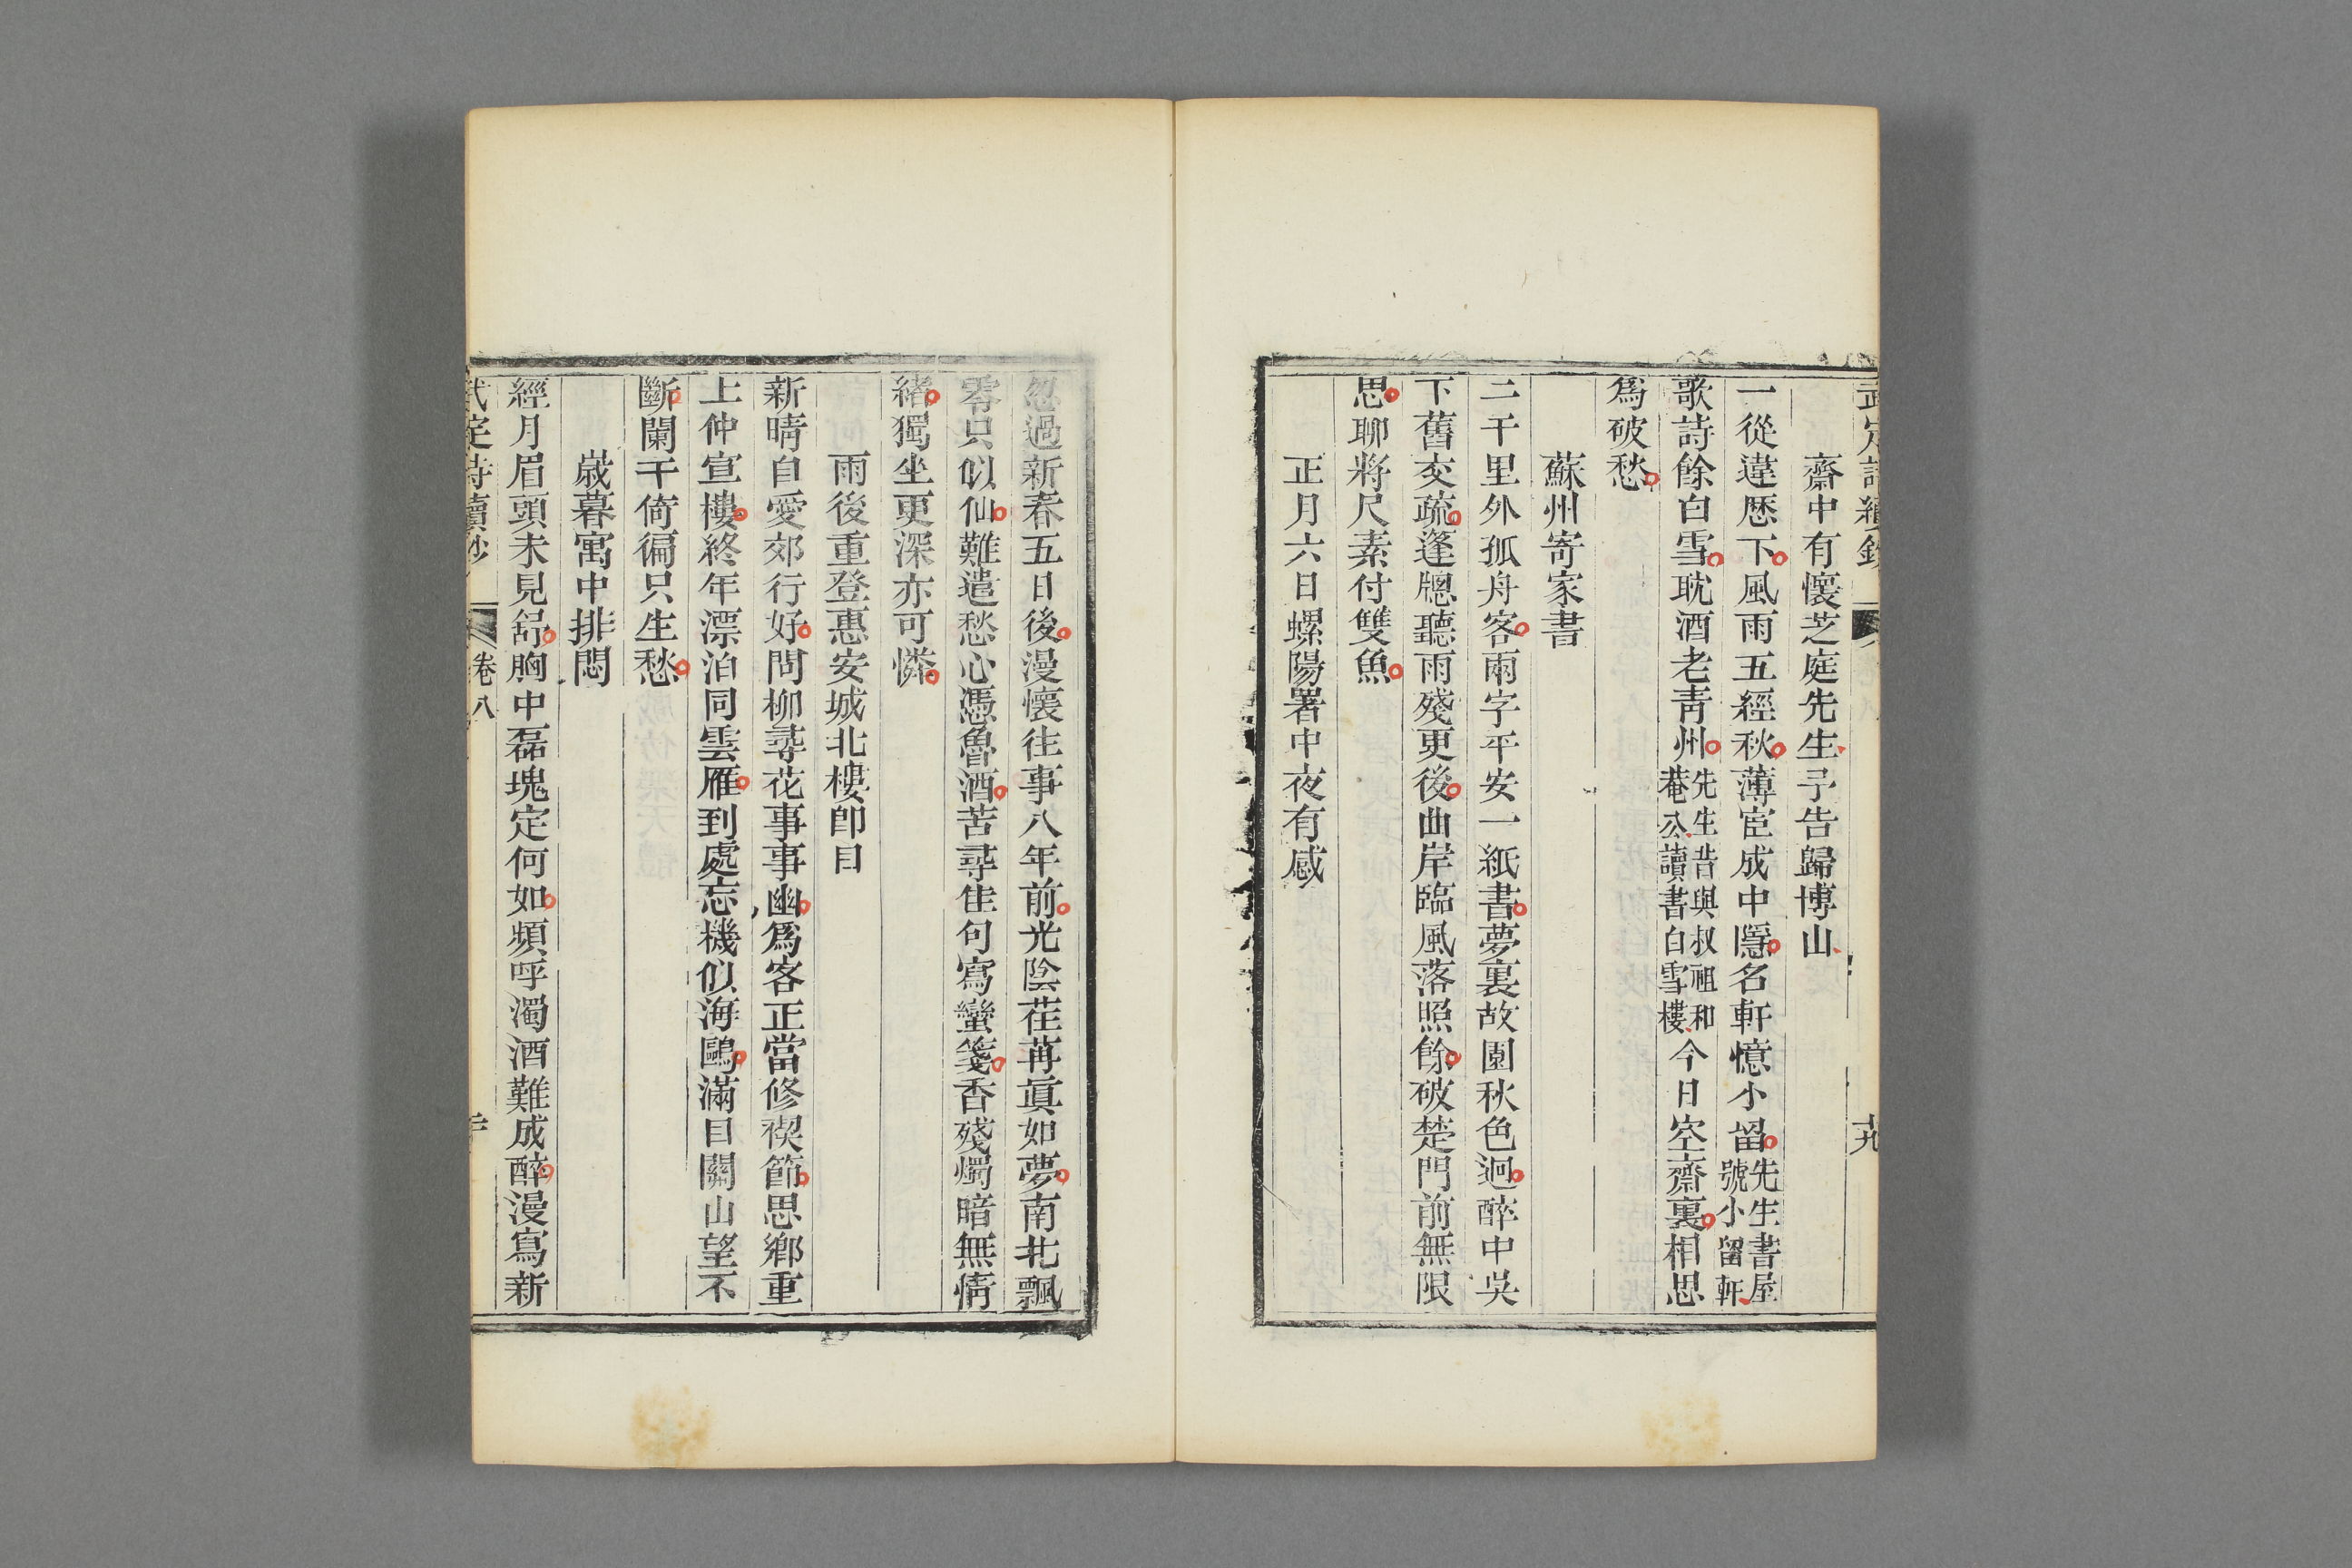 齋中有懷芝庭先生予告歸博山
一從違歷下風雨五經秋薄宦成中隱名軒憶小留先生書屋號小留軒
歌詩餘白雪耽酒老青州先生昔與叔祖和菴公讀書白雪樓今日空齋裏相思
爲破愁
蘇州寄家書
二千里外孤舟客兩字平安一紙書夢裏故園秋色迥醉中吳
下舊交疏蓬牕聽雨殘更後曲岸臨風落照餘破楚門前無限
思聊將尺素付雙魚
正月六日螺陽署中夜有感
忽過新春五日後漫懷往事八年前光陰荏苒眞如夢南北飄
零只似仙難遣愁心憑魯酒苦尋佳句寫蠻箋香殘燭暗無情
緒獨坐更深亦可憐
雨後重登惠安城北樓即目
新晴自愛郊行好問柳尋花事事幽爲客正當修禊節思鄉重
上仲宣樓終年漂泊同雲雁到處忘機似海鷗滿目關山望不
斷闌干倚徧只生愁
歲暮寓中排悶
經月眉頭未見舒胸中磊塊定何如頻呼濁酒難成醉漫寫新
武定詩續鈔 卷八